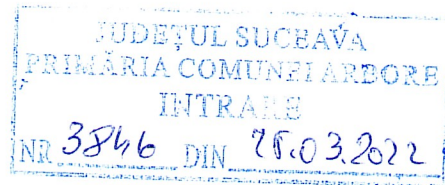 JUDEȚUL SUCEAVA
PRIMĂRIA COMUNEI ARBORE
INTRARE
NR 3846 DIN 25.03.2022